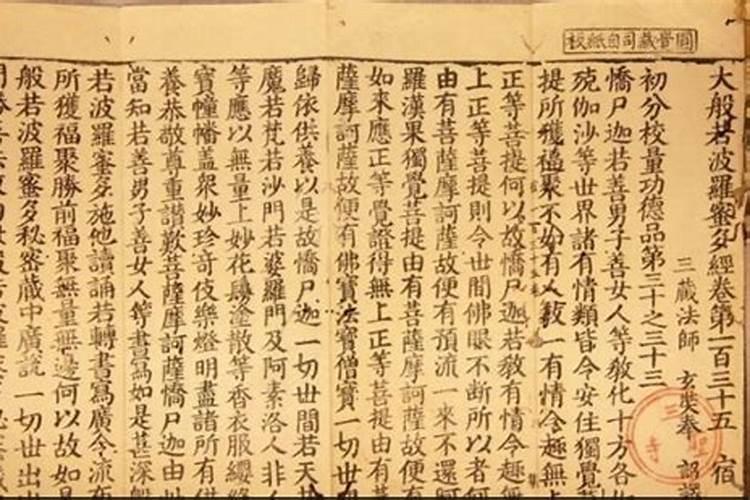 圓覺藏司自紙板
大般若波羅蜜多經卷第一百三十五 宿
三藏法師 玄奘奉 詔譯
初分校量功德品第三十之三十三
憍尸迦若善男子善女人等教化十方各
殑伽沙等世界諸有情類皆令安住獨覺菩
提所獲福聚不如有人教一有情令趣無上
正等菩提何以故憍尸迦若教有情令趣無
上正等菩提則令世間佛眼不斷所以者何
由有菩薩摩訶薩故便有預流一來不還阿
羅漢果獨覺菩提由有菩薩摩訶薩故便有
如來應正等覺證得無上正等菩提由有菩
薩摩訶薩故便有佛寶法寶僧寶一切世
歸依供養以是故憍尸迦一切世間若天若
魔若梵若沙門若婆羅門及阿素洛人非人
等應以無量上妙花鬘塗散等香衣服纓絡
寶幢幡蓋眾妙珍奇伎樂燈明盡諸所有供
養恭敬尊重讚歎菩薩摩訶薩憍尸迦由此
當知若善男子善女人等書寫如是甚深般
若波羅蜜多施他讀誦若轉書寫廣令流布
所獲福聚勝前福聚無量無邊何以故如是
般若波羅蜜多秘密藏中廣說一切世出世
三聖寺